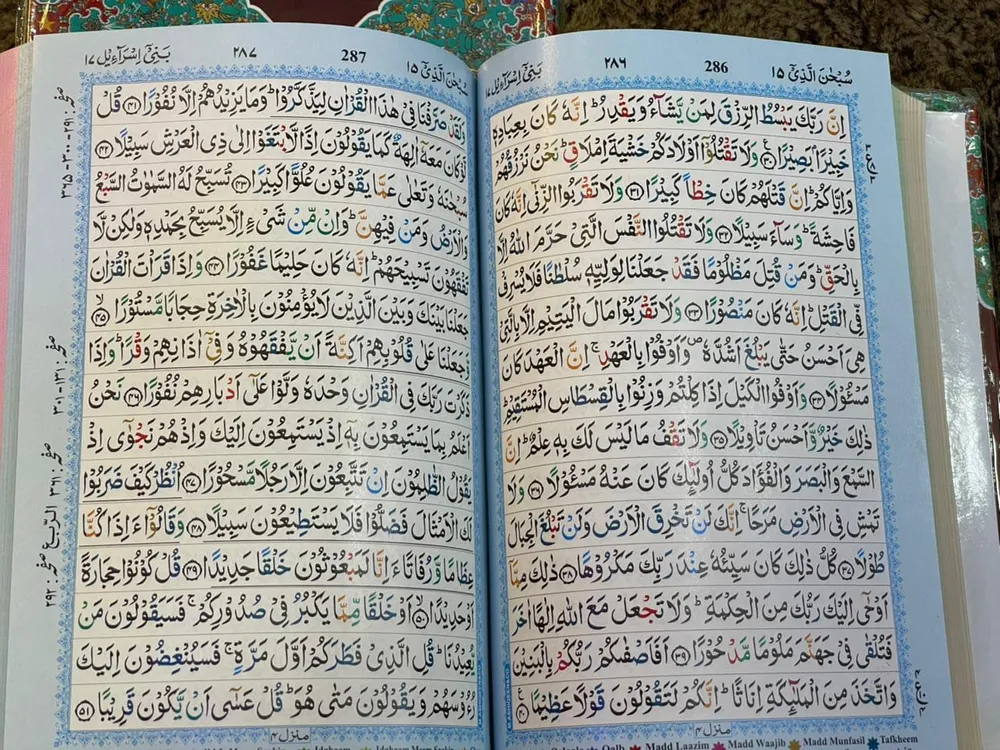 سُبْحٰنَ الَّذِیْۤ ١٥
286
٢٨٦
بَنِیْۤ اِسْرَآءِیْل ١٧
اِنَّ رَبَّكَ یَبْسُطُ الرِّزْقَ لِمَنْ یَّشَآءُ وَ یَقْدِرُ ؕ اِنَّهٗ كَانَ بِعِبَادِهٖ
خَبِیْرًۢا بَصِیْرًا ﴿٣٠﴾ وَلَا تَقْتُلُوْۤا اَوْلَادَكُمْ خَشْیَةَ اِمْلَاقٍ ؕ نَحْنُ نَرْزُقُهُمْ
وَاِیَّاكُمْ ؕ اِنَّ قَتْلَهُمْ كَانَ خِطْاً كَبِیْرًا ﴿٣١﴾ وَلَا تَقْرَبُوا الزِّنٰۤی اِنَّهٗ كَانَ
فَاحِشَةً ؕ وَسَآءَ سَبِیْلًا ﴿٣٢﴾ وَلَا تَقْتُلُوا النَّفْسَ الَّتِیْ حَرَّمَ اللّٰهُ اِلَّا
بِالْحَقِّ ؕ وَمَنْ قُتِلَ مَظْلُوْمًا فَقَدْ جَعَلْنَا لِوَلِیِّهٖ سُلْطٰنًا فَلَا یُسْرِفْ
فِّی الْقَتْلِ ؕ اِنَّهٗ كَانَ مَنْصُوْرًا ﴿٣٣﴾ وَلَا تَقْرَبُوْا مَالَ الْیَتِیْمِ اِلَّا بِالَّتِیْ
هِیَ اَحْسَنُ حَتّٰی یَبْلُغَ اَشُدَّهٗ ۪ وَاَوْفُوْا بِالْعَهْدِ ۚ اِنَّ الْعَهْدَ كَانَ
مَسْـُٔوْلًا ﴿٣٤﴾ وَاَوْفُوا الْكَیْلَ اِذَا كِلْتُمْ وَزِنُوْا بِالْقِسْطَاسِ الْمُسْتَقِیْمِ ؕ
ذٰلِكَ خَیْرٌ وَّاَحْسَنُ تَاْوِیْلًا ﴿٣٥﴾ وَلَا تَقْفُ مَا لَیْسَ لَكَ بِهٖ عِلْمٌ ؕ اِنَّ
السَّمْعَ وَالْبَصَرَ وَالْفُؤَادَ كُلُّ اُولٰٓئِكَ كَانَ عَنْهُ مَسْـُٔوْلًا ﴿٣٦﴾ وَلَا
تَمْشِ فِی الْاَرْضِ مَرَحًا ۚ اِنَّكَ لَنْ تَخْرِقَ الْاَرْضَ وَلَنْ تَبْلُغَ الْجِبَالَ
طُوْلًا ﴿٣٧﴾ كُلُّ ذٰلِكَ كَانَ سَیِّئُهٗ عِنْدَ رَبِّكَ مَكْرُوْهًا ﴿٣٨﴾ ذٰلِكَ مِمَّاۤ
اَوْحٰۤی اِلَیْكَ رَبُّكَ مِنَ الْحِكْمَةِ ؕ وَلَا تَجْعَلْ مَعَ اللّٰهِ اِلٰهًا اٰخَرَ
فَتُلْقٰی فِیْ جَهَنَّمَ مَلُوْمًا مَّدْحُوْرًا ﴿٣٩﴾ اَفَاَصْفٰىكُمْ رَبُّكُمْ بِالْبَنِیْنَ
وَاتَّخَذَ مِنَ الْمَلٰٓئِكَةِ اِنَاثًا ؕ اِنَّكُمْ لَتَقُوْلُوْنَ قَوْلًا عَظِیْمًا ﴿٤٠﴾
منزل ٤
Qalb Madd Laazim Madd Waajib Madd Munfasil Tafkheem
سُبْحٰنَ الَّذِیْۤ ١٥
287
٢٨٧
بَنِیْۤ اِسْرَآءِیْل ١٧
وَلَقَدْ صَرَّفْنَا فِیْ هٰذَا الْقُرْاٰنِ لِیَذَّكَّرُوْا ؕ وَمَا یَزِیْدُهُمْ اِلَّا نُفُوْرًا ﴿٤١﴾ قُلْ
لَّوْ كَانَ مَعَهٗۤ اٰلِهَةٌ كَمَا یَقُوْلُوْنَ اِذًا لَّابْتَغَوْا اِلٰی ذِی الْعَرْشِ سَبِیْلًا ﴿٤٢﴾
سُبْحٰنَهٗ وَتَعٰلٰی عَمَّا یَقُوْلُوْنَ عُلُوًّا كَبِیْرًا ﴿٤٣﴾ تُسَبِّحُ لَهُ السَّمٰوٰتُ السَّبْعُ
وَالْاَرْضُ وَمَنْ فِیْهِنَّ ؕ وَاِنْ مِّنْ شَیْءٍ اِلَّا یُسَبِّحُ بِحَمْدِهٖ وَلٰكِنْ لَّا
تَفْقَهُوْنَ تَسْبِیْحَهُمْ ؕ اِنَّهٗ كَانَ حَلِیْمًا غَفُوْرًا ﴿٤٤﴾ وَاِذَا قَرَاْتَ الْقُرْاٰنَ
جَعَلْنَا بَیْنَكَ وَبَیْنَ الَّذِیْنَ لَا یُؤْمِنُوْنَ بِالْاٰخِرَةِ حِجَابًا مَّسْتُوْرًا ۙ﴿٤٥﴾
وَّجَعَلْنَا عَلٰی قُلُوْبِهِمْ اَكِنَّةً اَنْ یَّفْقَهُوْهُ وَفِیْۤ اٰذَانِهِمْ وَقْرًا ؕ وَاِذَا
ذَكَرْتَ رَبَّكَ فِی الْقُرْاٰنِ وَحْدَهٗ وَلَّوْا عَلٰۤی اَدْبَارِهِمْ نُفُوْرًا ﴿٤٦﴾ نَحْنُ
اَعْلَمُ بِمَا یَسْتَمِعُوْنَ بِهٖۤ اِذْ یَسْتَمِعُوْنَ اِلَیْكَ وَاِذْ هُمْ نَجْوٰۤی اِذْ
یَقُوْلُ الظّٰلِمُوْنَ اِنْ تَتَّبِعُوْنَ اِلَّا رَجُلًا مَّسْحُوْرًا ﴿٤٧﴾ اُنْظُرْ كَیْفَ ضَرَبُوْا
لَكَ الْاَمْثَالَ فَضَلُّوْا فَلَا یَسْتَطِیْعُوْنَ سَبِیْلًا ﴿٤٨﴾ وَقَالُوْۤا ءَاِذَا كُنَّا
عِظَامًا وَّرُفَاتًا ءَاِنَّا لَمَبْعُوْثُوْنَ خَلْقًا جَدِیْدًا ﴿٤٩﴾ قُلْ كُوْنُوْا حِجَارَةً
اَوْ حَدِیْدًا ﴿٥٠﴾ اَوْ خَلْقًا مِّمَّا یَكْبُرُ فِیْ صُدُوْرِكُمْ ۚ فَسَیَقُوْلُوْنَ مَنْ
یُّعِیْدُنَا ؕ قُلِ الَّذِیْ فَطَرَكُمْ اَوَّلَ مَرَّةٍ ۚ فَسَیُنْغِضُوْنَ اِلَیْكَ
رُءُوْسَهُمْ وَیَقُوْلُوْنَ مَتٰی هُوَ ؕ قُلْ عَسٰۤی اَنْ یَّكُوْنَ قَرِیْبًا ﴿٥١﴾
منزل ٤